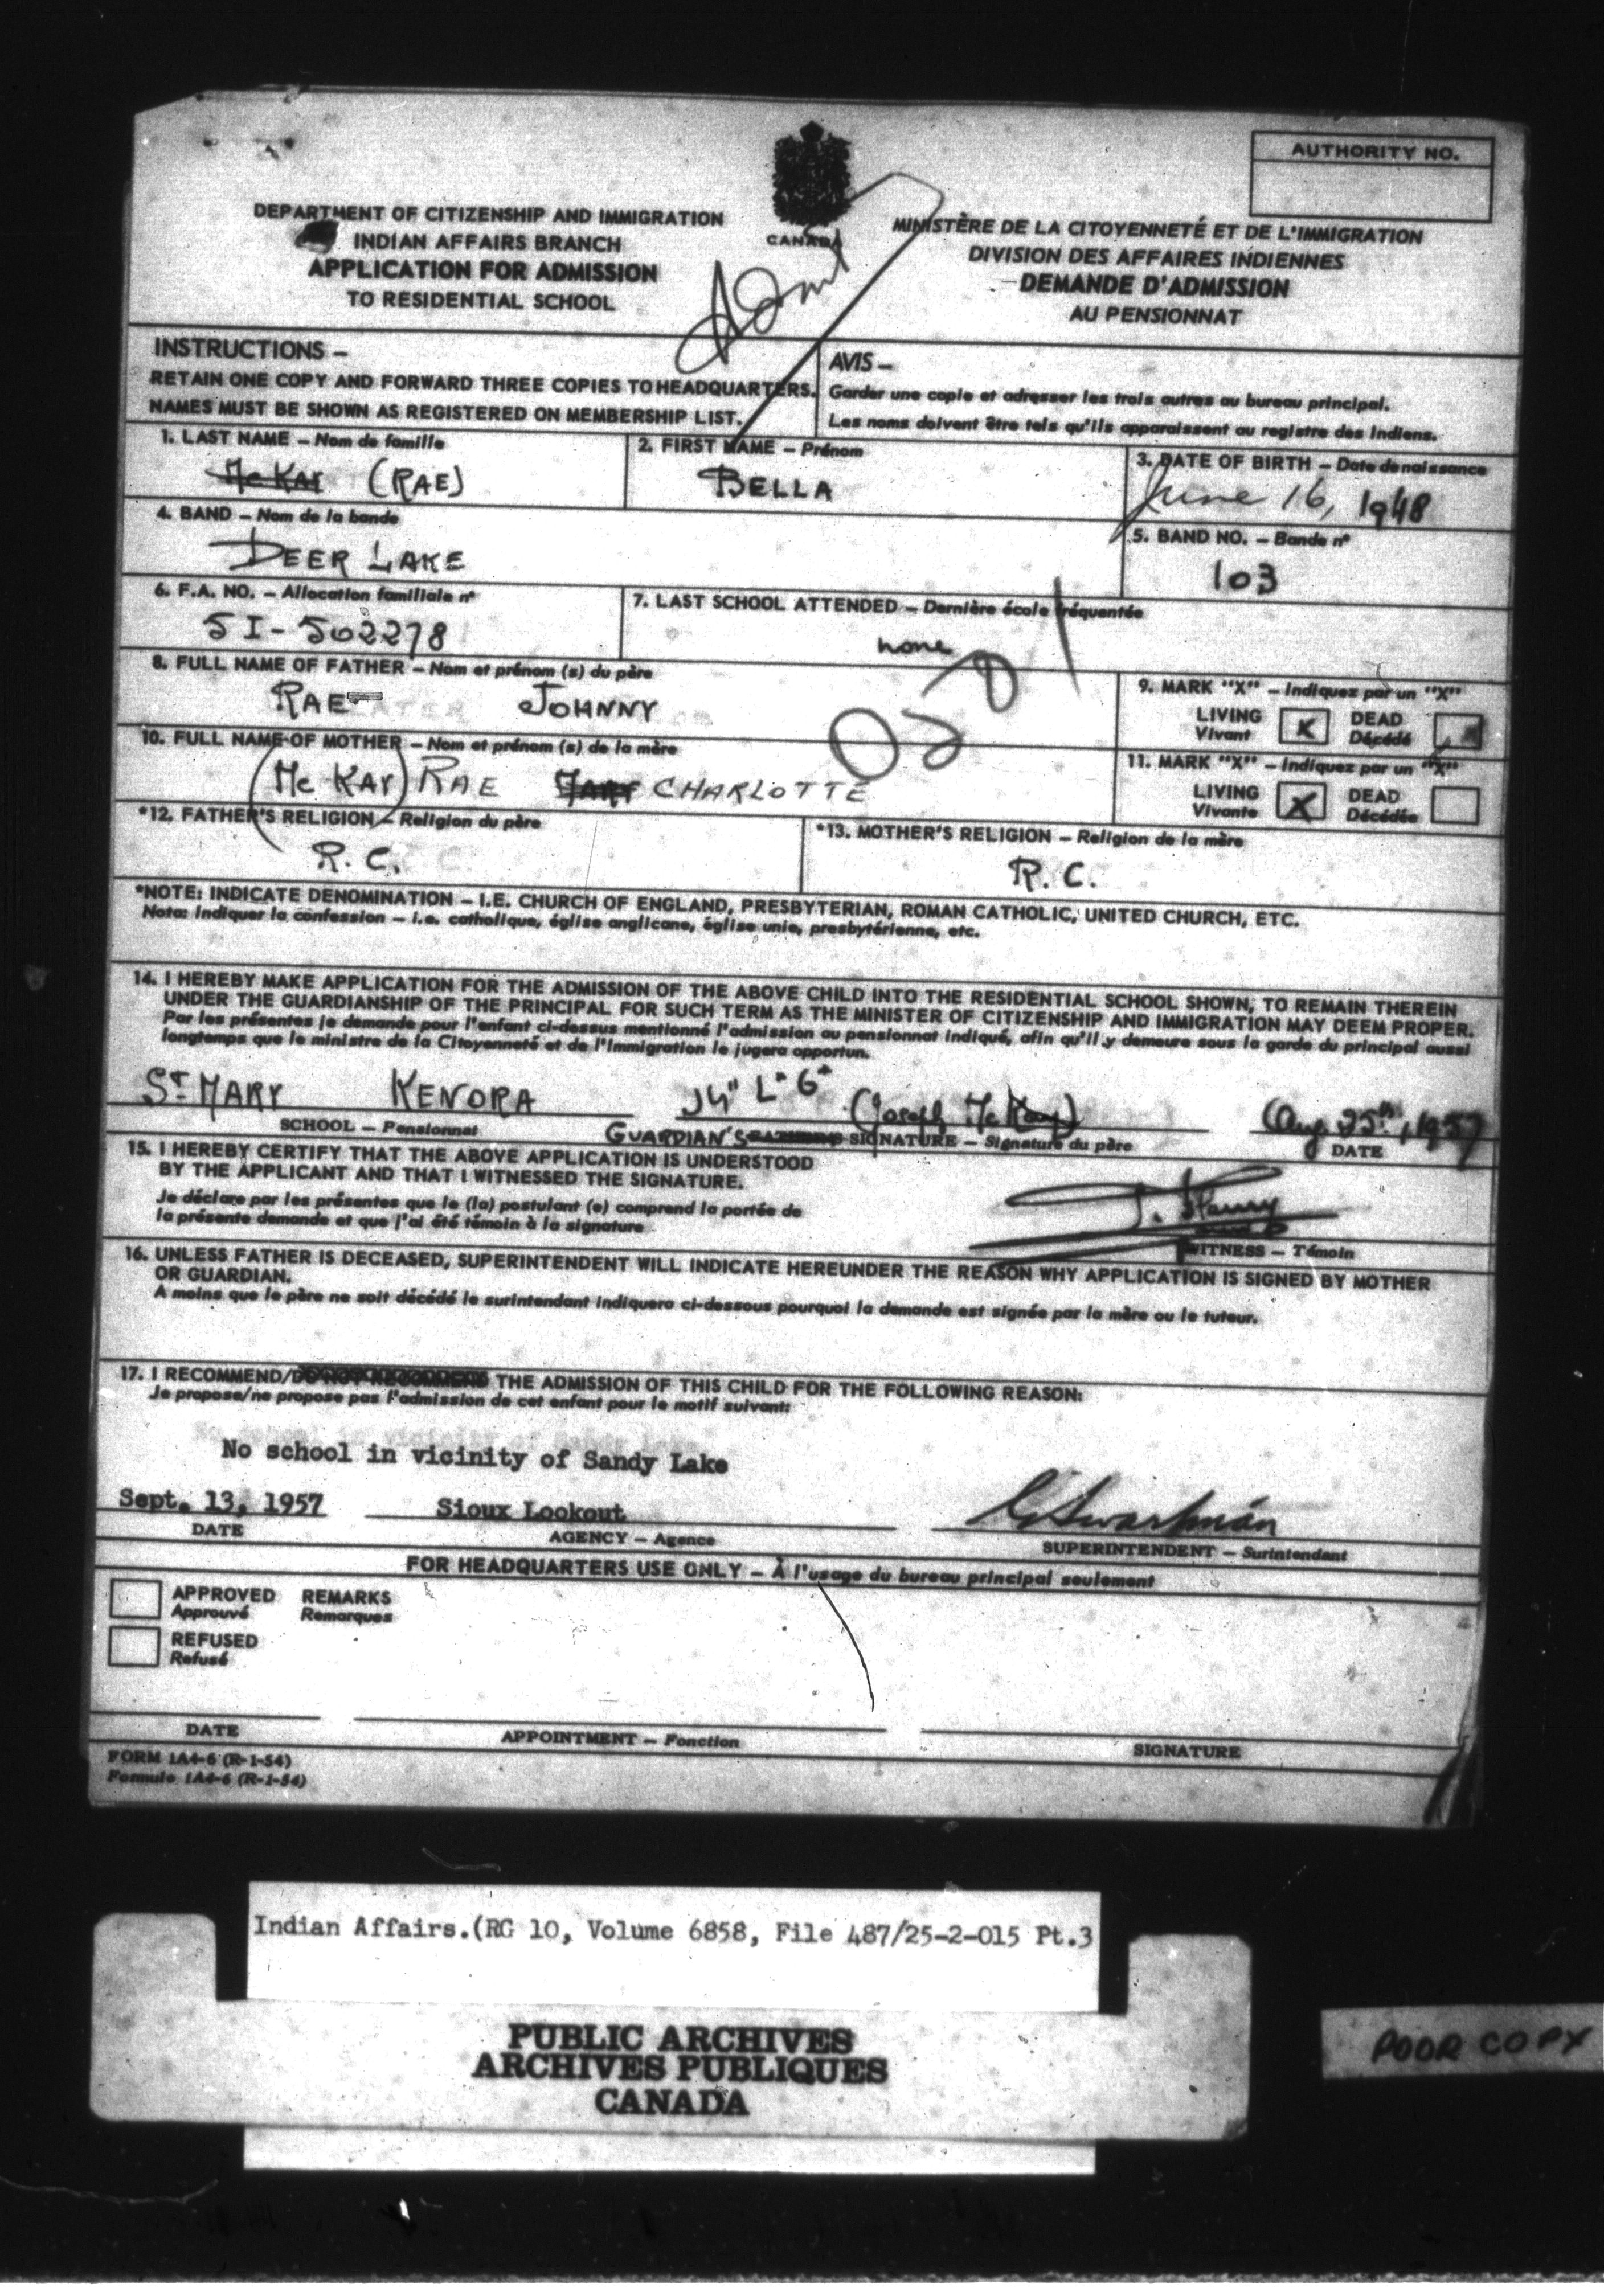 AUTHORITY NO.
DEPARTMENT OF CITIZENSHIP AND IMMIGRATION
INDIAN AFFAIRS BRANCH
APPLICATION FOR ADMISSION
TO RESIDENTIAL SCHOOL
CANADA
MINISTÈRE DE LA CITOYENNETÉ ET DE L'IMMIGRATION
DIVISION DES AFFAIRES INDIENNES
DEMANDE D'ADMISSION
AU PENSIONNAT
Admit
INSTRUCTIONS –
RETAIN ONE COPY AND FORWARD THREE COPIES TO HEADQUARTERS.
NAMES MUST BE SHOWN AS REGISTERED ON MEMBERSHIP LIST.
AVIS –
Garder une copie et adresser les trois autres au bureau principal.
Les noms doivent être tels qu'ils apparaissent au registre des Indiens.
1. LAST NAME – Nom de famille
McKay (RAE)
2. FIRST NAME – Prénom
BELLA
3. DATE OF BIRTH – Date de naissance
June 16, 1948
4. BAND – Nom de la bande
DEER LAKE
5. BAND NO. – Bande nº
103
6. F.A. NO. – Allocation familiale nº
5 I - 502278
7. LAST SCHOOL ATTENDED – Dernière école fréquentée
none
8. FULL NAME OF FATHER – Nom et prénom (s) du père
RAE JOHNNY
9. MARK "X" – Indiquez par un "X"
LIVING DEAD
Vivant X Décédé
10. FULL NAME OF MOTHER – Nom et prénom (s) de la mère
(McKay) RAE MARY CHARLOTTE
11. MARK "X" – Indiquez par un "X"
LIVING DEAD
Vivante X Décédée
*12. FATHER'S RELIGION – Religion du père
R. C.
*13. MOTHER'S RELIGION – Religion de la mère
R. C.
*NOTE: INDICATE DENOMINATION – I.E. CHURCH OF ENGLAND, PRESBYTERIAN, ROMAN CATHOLIC, UNITED CHURCH, ETC.
Nota: Indiquer la confession – i.e. catholique, église anglicane, église unie, presbytérienne, etc.
14. I HEREBY MAKE APPLICATION FOR THE ADMISSION OF THE ABOVE CHILD INTO THE RESIDENTIAL SCHOOL SHOWN, TO REMAIN THEREIN
UNDER THE GUARDIANSHIP OF THE PRINCIPAL FOR SUCH TERM AS THE MINISTER OF CITIZENSHIP AND IMMIGRATION MAY DEEM PROPER.
Par les présentes je demande pour l'enfant ci-dessus mentionné l'admission au pensionnat indiqué, afin qu'il y demeure sous la garde du principal aussi
longtemps que le ministre de la Citoyenneté et de l'Immigration le jugera opportun.
ST MARY KENORA (Joseph McKay) Aug 25th, 1957
SCHOOL – Pensionnat GUARDIAN'S SIGNATURE – Signature du père DATE
15. I HEREBY CERTIFY THAT THE ABOVE APPLICATION IS UNDERSTOOD
BY THE APPLICANT AND THAT I WITNESSED THE SIGNATURE.
Je déclare par les présentes que le (la) postulant (e) comprend la portée de
la présente demande et que j'ai été témoin à la signature
WITNESS – Témoin
16. UNLESS FATHER IS DECEASED, SUPERINTENDENT WILL INDICATE HEREUNDER THE REASON WHY APPLICATION IS SIGNED BY MOTHER
OR GUARDIAN.
A moins que le père ne soit décédé le surintendant indiquera ci-dessous pourquoi la demande est signée par la mère ou le tuteur.
17. I RECOMMEND/DO NOT RECOMMEND THE ADMISSION OF THIS CHILD FOR THE FOLLOWING REASON:
Je propose/ne propose pas l'admission de cet enfant pour le motif suivant:
No school in vicinity of Sandy Lake
Sept. 13, 1957 Sioux Lookout G. Swartman
DATE AGENCY – Agence SUPERINTENDENT – Surintendant
FOR HEADQUARTERS USE ONLY – À l'usage du bureau principal seulement
APPROVED REMARKS
Approuvé Remarques
REFUSED
Refusé
DATE APPOINTMENT – Fonction SIGNATURE
FORM 1A4-6 (R-1-54)
Formule 1A4-6 (R-1-54)
Indian Affairs.(RG 10, Volume 6858, File 487/25-2-015 Pt.3
PUBLIC ARCHIVES
ARCHIVES PUBLIQUES
CANADA
POOR COPY